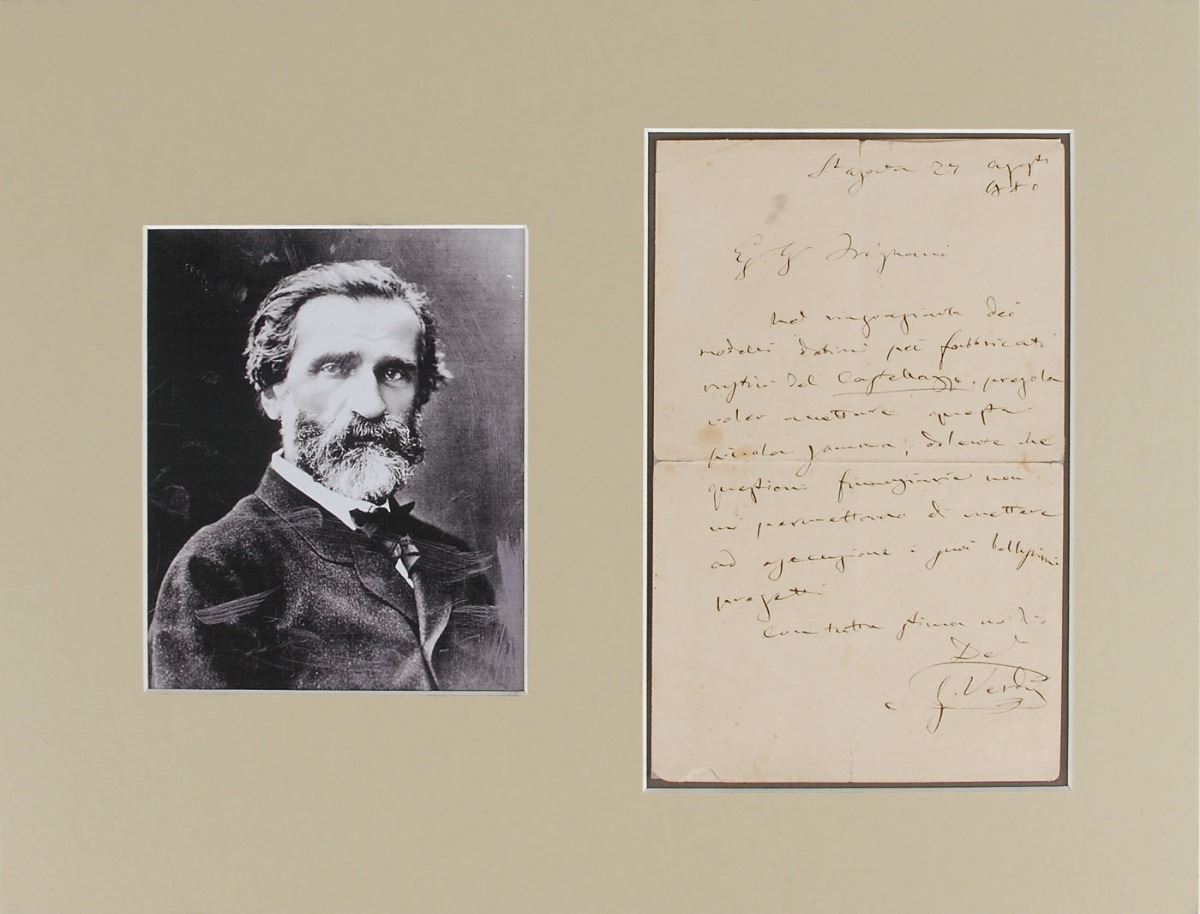 St Agata 27 agosto
1880
Eg G Frignani
Nel ringraziarla dei
modelli datimi pei fabbricati
rustici del Castellazzo, pregola
voler ammettere questa
piccola somma, dolente che
questioni finanziarie non
mi permettano di mettere
ad esecuzione i suoi bellissimi
progetti
Con tutta stima mi dico
Dev
G. Verdi